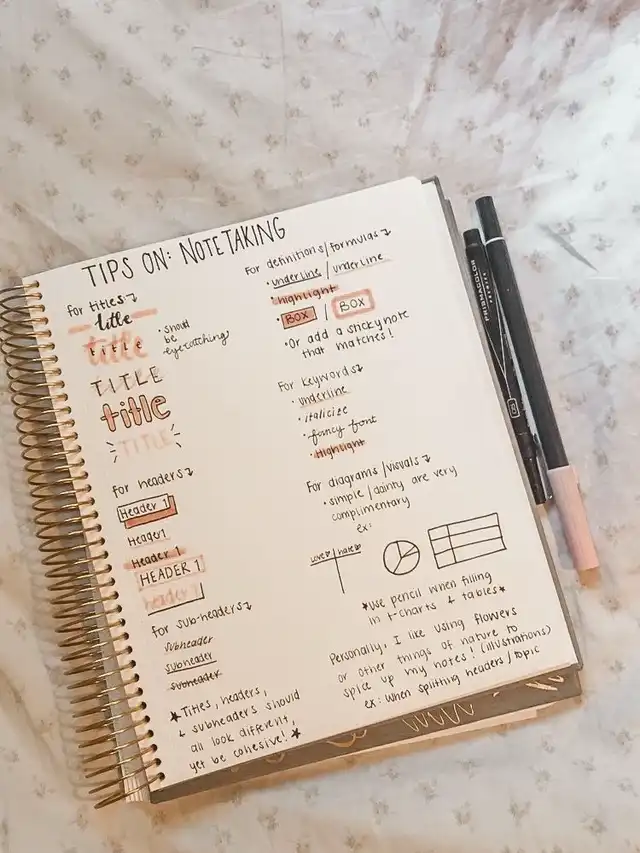 TIPS ON: NOTETAKING
for titles↴
title
title
TITLE
title
TITLE
• should
be
eyecatching
for headers↴
Header 1
Header1
Header 1
HEADER 1
header 1
for sub-headers↴
subheader
subheader
subheader
★Titles, headers,
+ subheaders should
all look different,
yet be cohesive!★
for definitions/formulas↴
• underline / underline
• highlight
• BOX / BOX
• Or add a sticky note
that matches!
for keywords↴
• underline
• italicize
• fancy font
• highlight
for diagrams/visuals↴
• simple/dainty are very
complimentary
ex:
love | hate
★use pencil when filling
in t-charts + tables★
Personally, I like using flowers
or other things of nature to
spice up my notes! (illustrations)
ex: when splitting headers/topic
PRISMACOLOR